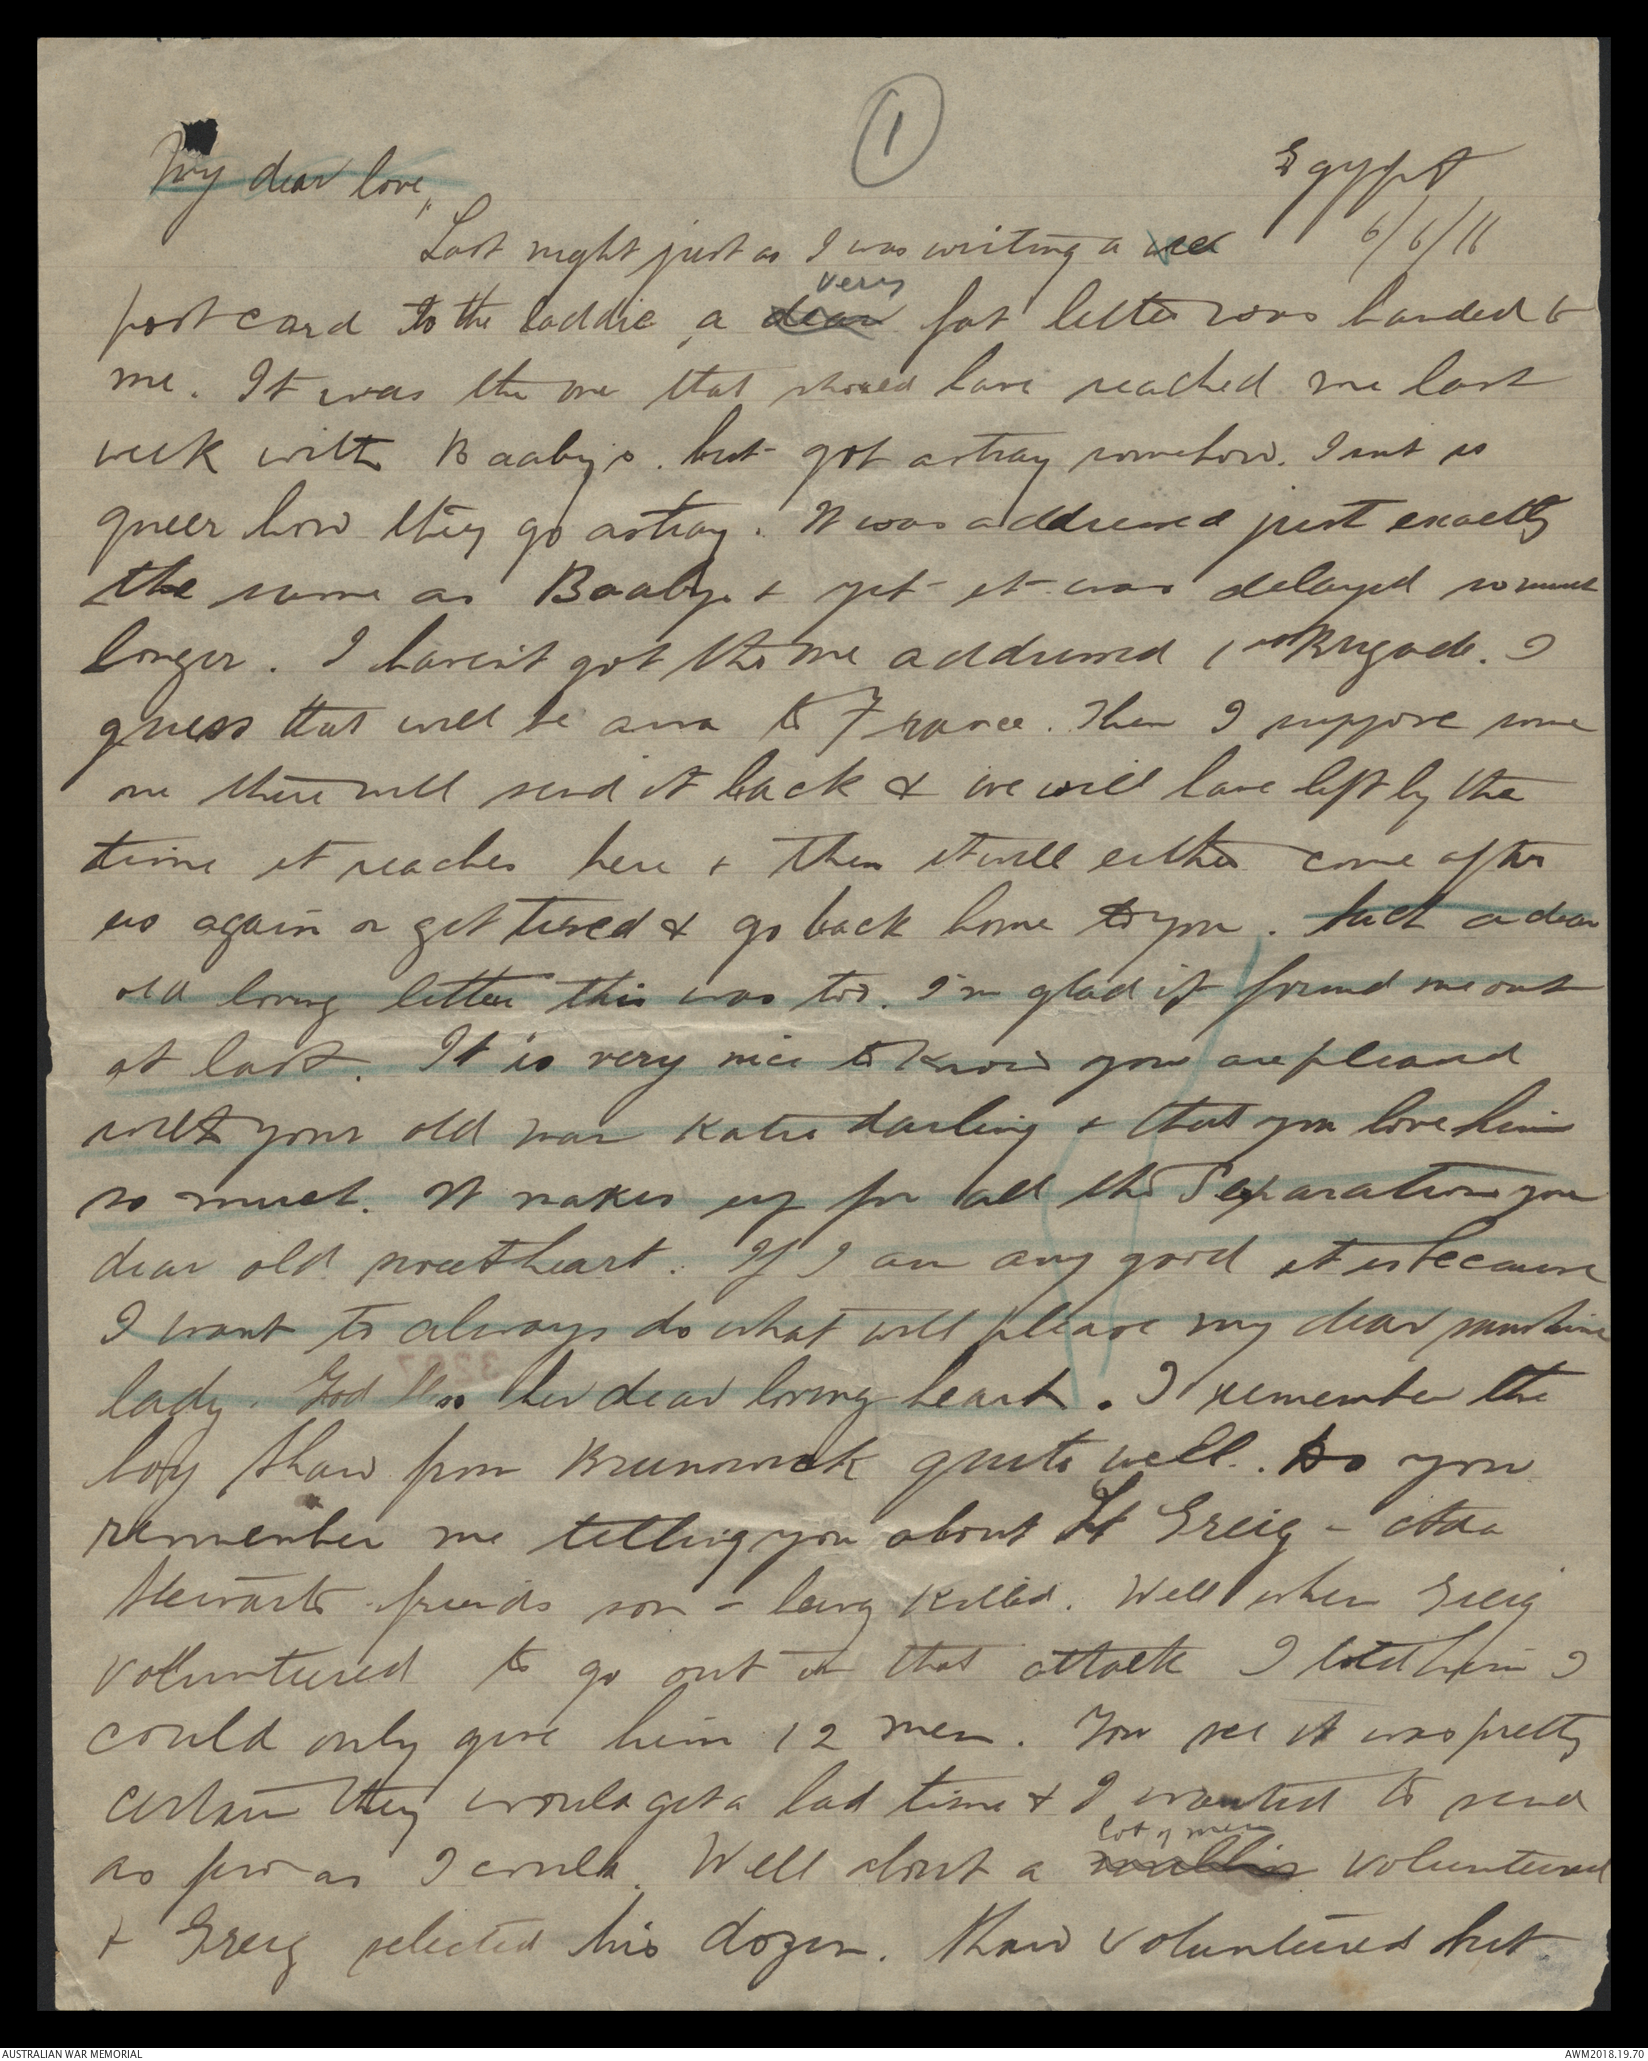 1
My dear love,
Egypt
6/6/16
Last night just as I was writing a wee
very
post card to the laddie, a dear fat letter was handed to
me. It was the one that should have reached me last
week with Baabys. but got astray somehow. Isnt is
queer how they go astray. It was addressed just exactly
the same as Baabys & yet it was delayed so much
longer. I haven't got the one addressed 1st Brigade. I
guess that will be awa to France. Then I suppose some
one there will send it back & we will have left by the
time it reaches here & then it will either come after
us again or get tired & go back home to you. Such a dear
old loving letter this was too. I'm glad it found me out
at last. It is very nice to know you are pleased
with your old man Katie darling & that you love him
so much. It makes up for all the separation you
dear old sweetheart. If I am any good it is because
I want to always do what will please my dear sunshine
lady. God bless her dear loving heart. I remember the
boy Shaw from Brunswick quite well. Do you
remember me telling you about Lt Greig - Ada
Stewarts friends son - being killed. Well when Greig
voluntured to go out in that attack I told him I
could only give him 12 men. You see it was pretty
certain they would get a bad time & I wanted to send
lot of men
as few as I could. Well about a voluntured
& Greig selected his dozen. Shaw volunteered but
AUSTRALIAN WAR MEMORIAL
AWM2018.19.70